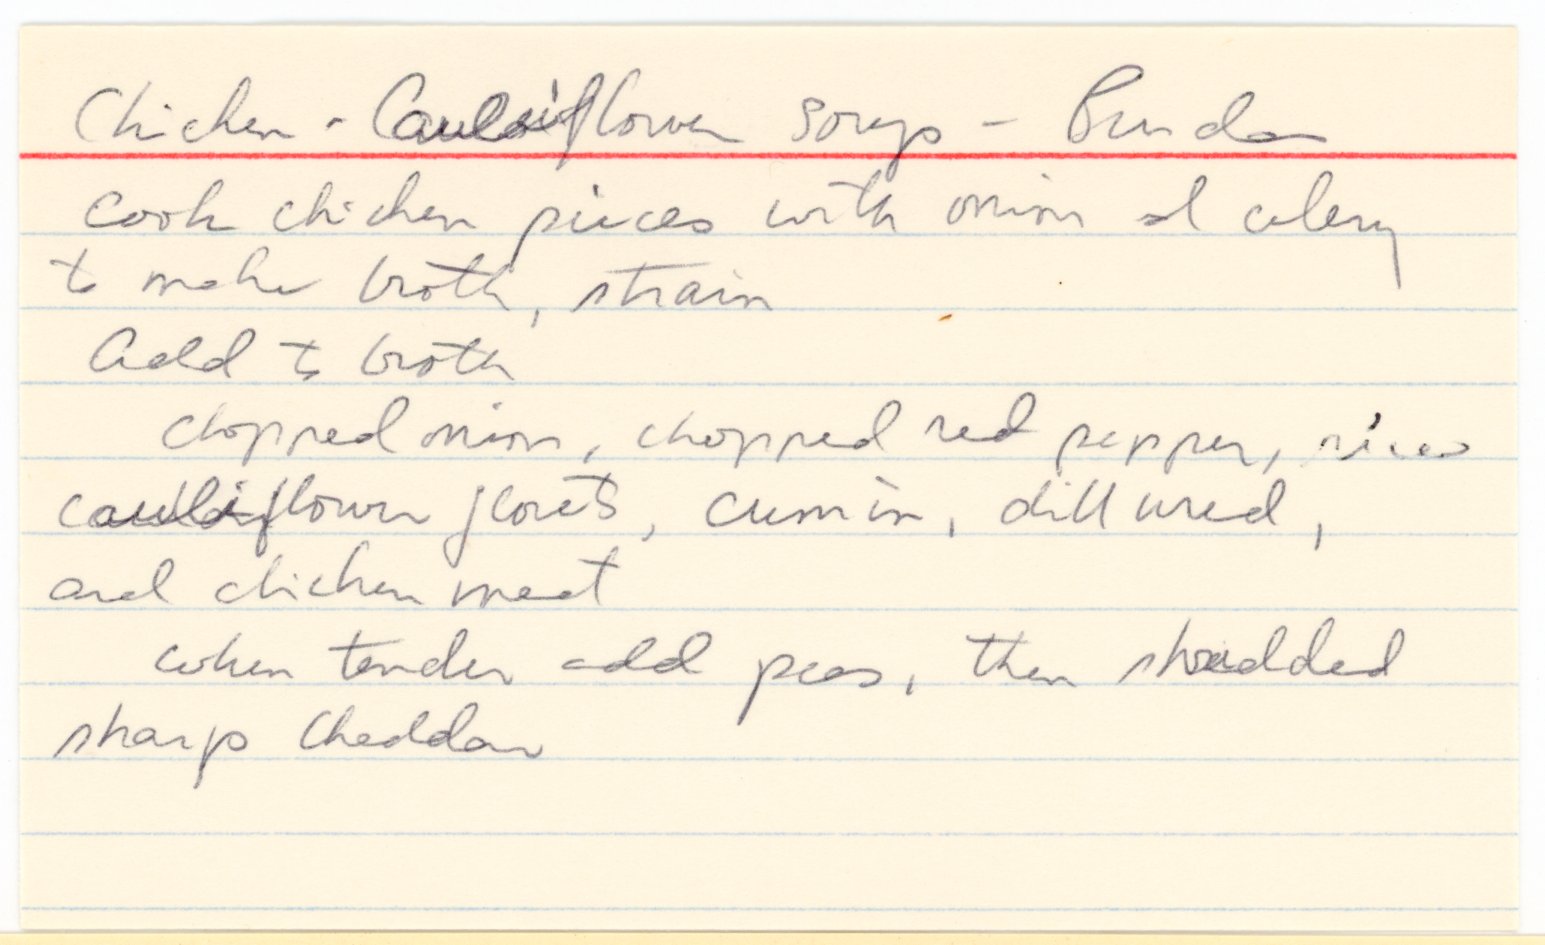 Chicken - Cauliflower Soup -
Cook chicken pieces with onion and celery
to make broth, strain
Add to broth
chopped onion, chopped red pepper, rice
cauliflower florets, cumin, dill weed,
and chicken meat
when tender add peas, then shredded
sharp Cheddar